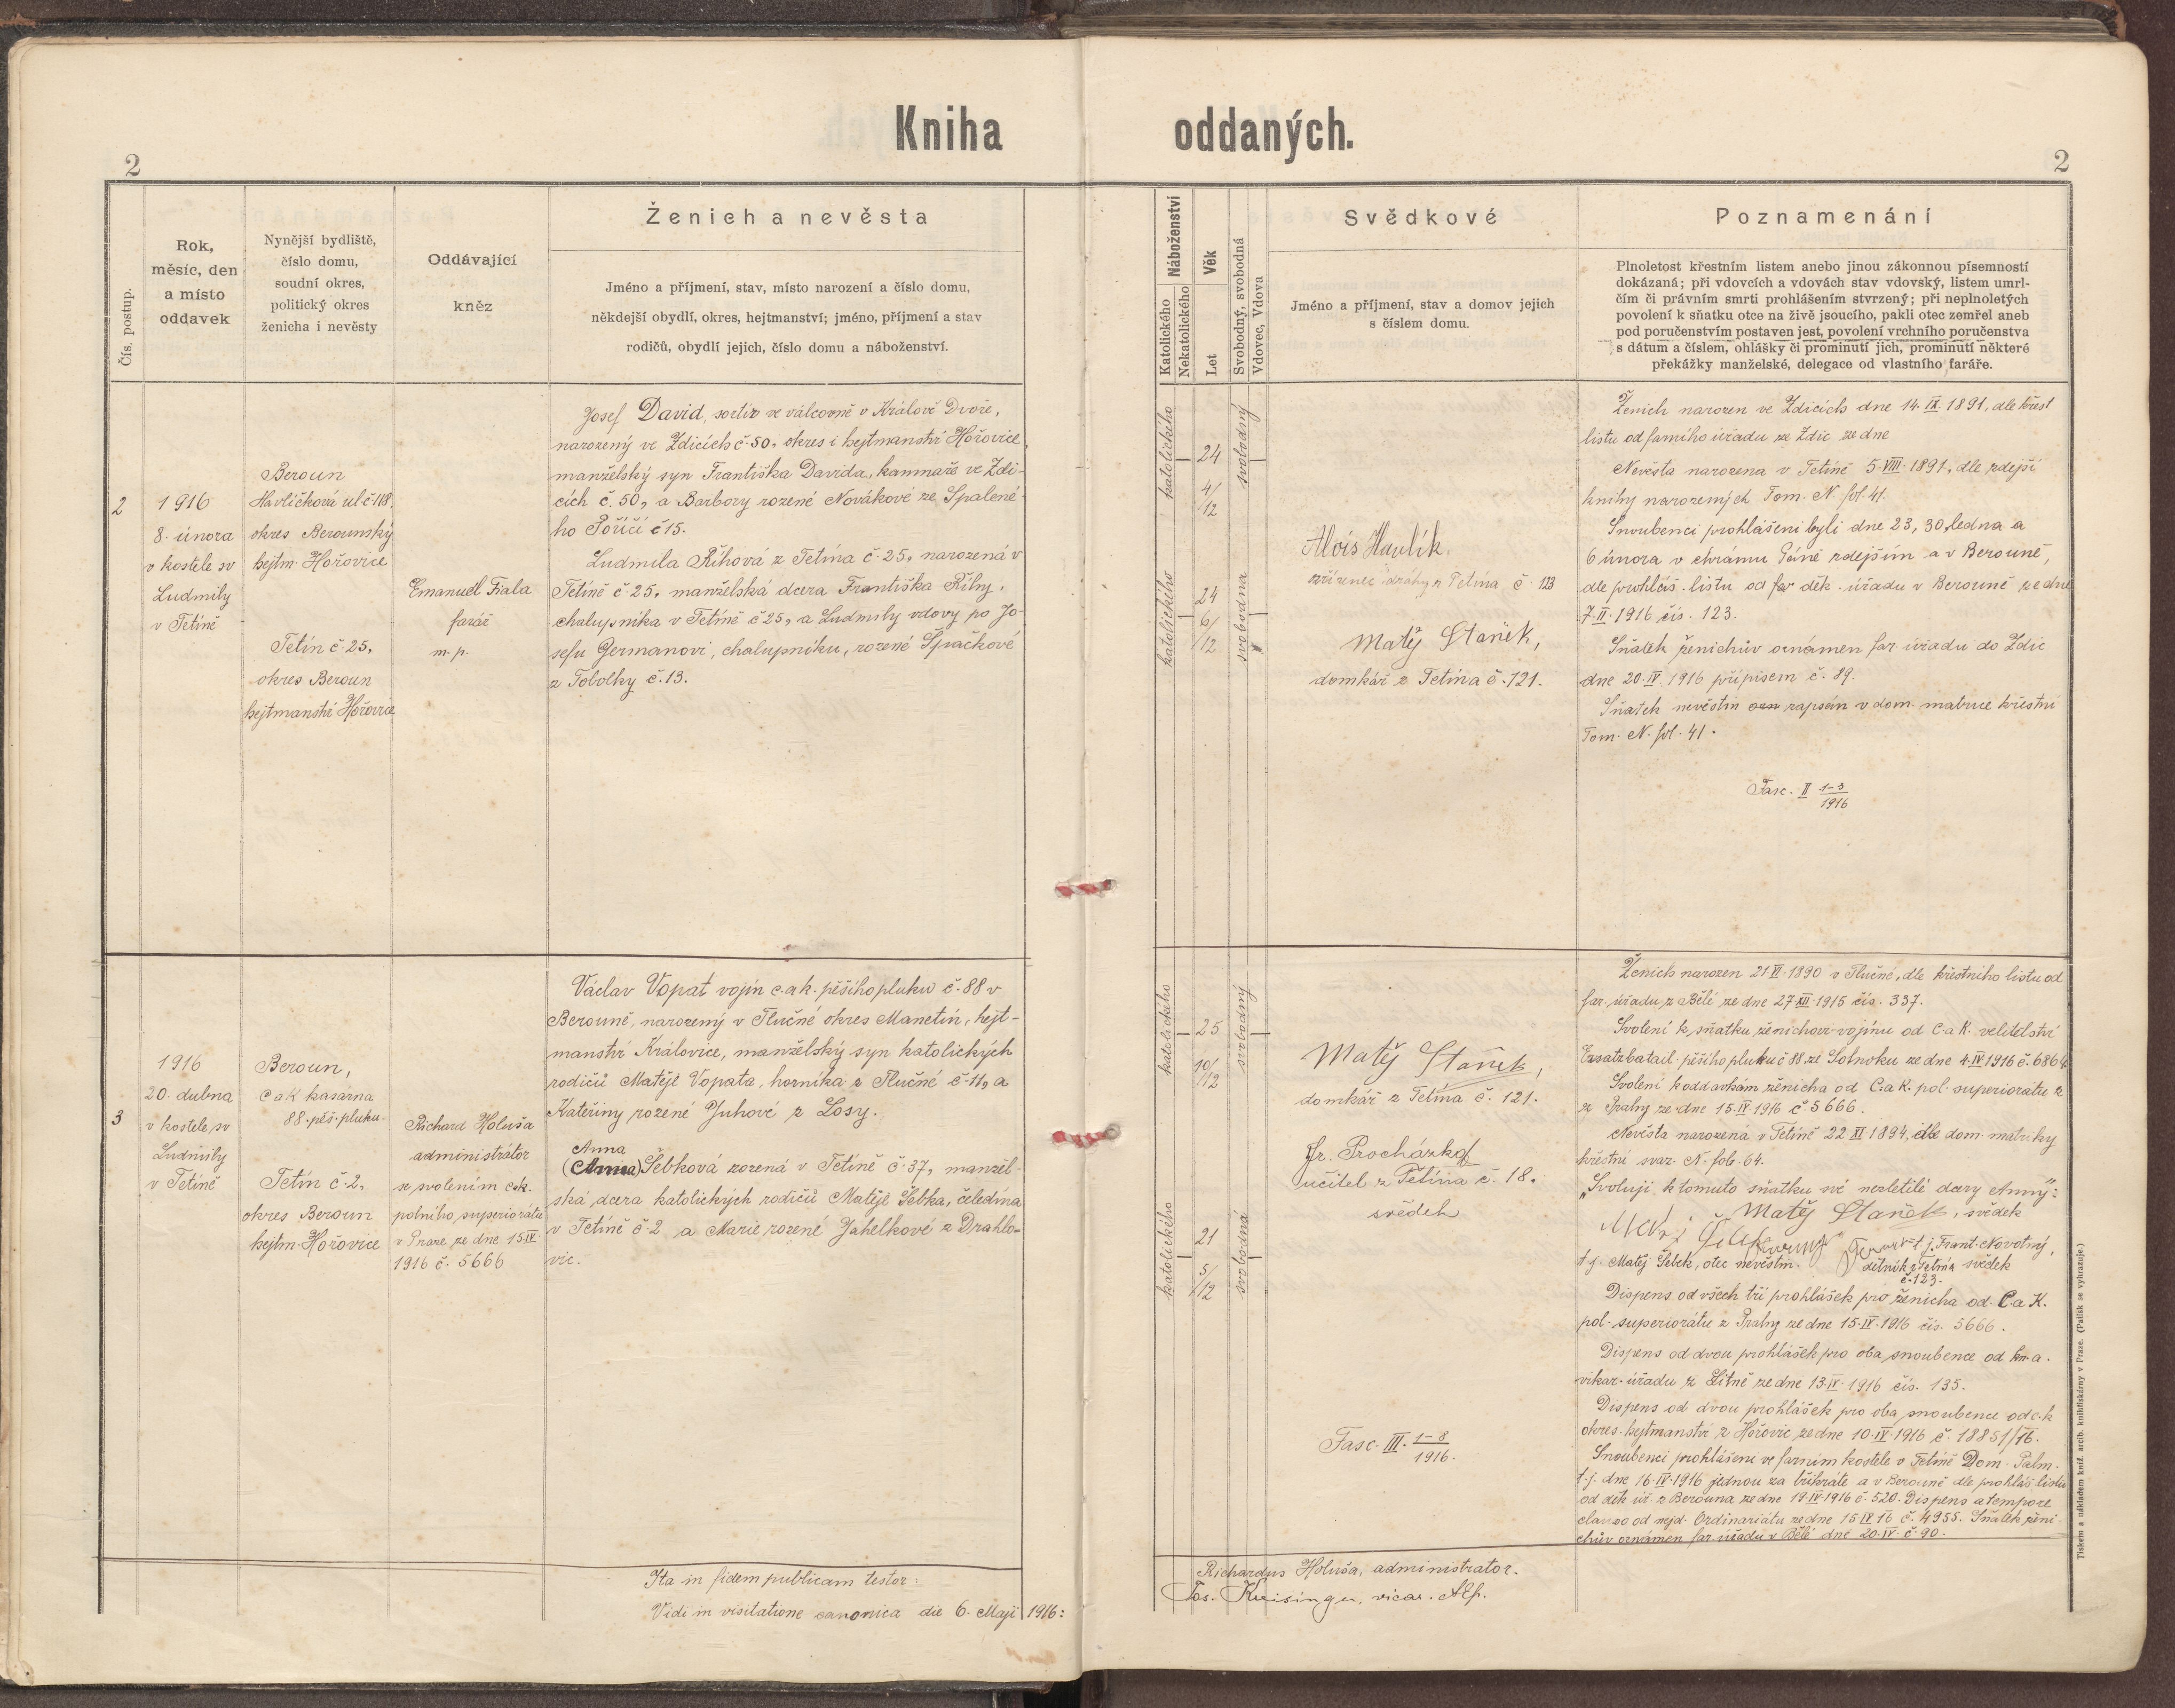 Kniha oddaných.
2
2
Čís. postup.
Rok,
měsíc, den
a místo
oddavek
Nynější bydliště,
číslo domu,
soudní okres,
politický okres
ženicha i nevěsty
Oddávající
kněz
Ženich a nevěsta
Jméno a příjmení, stav, místo narození a číslo domu,
někdejší obydlí, okres, hejtmanství; jméno, příjmení a stav
rodičů, obydlí jejich, číslo domu a náboženství.
Náboženství
Katolického
Nekatolického
Věk
Let
Svobodný, svobodná
Vdovec, Vdova
Svědkové
Jméno a příjmení, stav a domov jejich
s číslem domu.
Poznamenání
Plnoletost křestním listem anebo jinou zákonnou písemností
dokázaná; při vdovcích a vdovách stav vdovský, listem umrl-
čím či právním smrti prohlášením stvrzený; při neplnoletých
povolení k sňatku otce na živě jsoucího, pakli otec zemřel aneb
pod poručenstvím postaven jest, povolení vrchního poručenstva
s dátum a číslem, ohlášky či prominutí jich, prominutí některé
překážky manželské, delegace od vlastního faráře.
2
1916
8. února
v kostele sv
Ludmily
v Tetíně
Beroun
Havlíčkova ul. č 118,
okres Berounský
hejtm. Hořovice
Tetín č. 25,
okres Beroun
hejtmanství Hořovice
Emanuel Fiala
farář
m. p.
Josef David, sortir ve válcovně v Králově Dvoře,
narozený ve Zdicích č. 50, okres i hejtmanství Hořovice,
manželský syn Františka Davida, kamnaře ve Zdi-
cích č. 50, a Barbory rozené Novákové ze Spalené-
ho Poříčí č 15.
Ludmila Říhová z Tetína č. 25, narozená v
Tetíně č. 25, manželská dcera Františka Říhy,
chalupníka v Tetíně č 25, a Ludmily vdovy po Jo-
sefu Germanovi, chalupníku, rozené Špačkové
z Tobolky č. 13.
katolického
24
4/12
svobodný
katolického
24
6/12
svobodna
Alois Havlík,
zřízenec dráhy z Tetína č. 123
Matěj Staněk,
domkář z Tetína č. 121.
Ženich narozen ve Zdicích dne 14. IX. 1891, dle křest
listu od farního úřadu ze Zdic ze dne
Nevěsta narozena v Tetíně 5. VIII. 1891, dle zdejší
knihy narozených Tom. N. fol. 41.
Snoubenci prohlášeni byli dne 23, 30 ledna a
6 února v chrámu Páně zdejším a v Berouně,
dle prohláš. listu od far děk. úřadu v Berouně ze dne
7. II. 1916 čís. 123.
Sňatek ženichův oznámen far. úřadu do Zdic
dne 20. IV. 1916 přípisem č. 89.
Sňatek nevěstin ozn zapsán v dom. matrice křestní
Tom. N. fol. 41.
Fasc. II 1-3/1916
3
1916
20. dubna
v kostele sv
Ludmily
v Tetíně
Beroun,
c a k kasárna
88. pěš. pluku.
Tetín č. 2,
okres Beroun
hejtm. Hořovice
Richard Holuša
administrátor
se svolením c. a k.
polního superiorátu
v Praze ze dne 15. IV.
1916 č. 5666
Václav Vopat vojín c. a k. pěšího pluku č. 88 v
Berouně, narozený v Tlučné okres Manetín, hejt-
manství Královice, manželský syn katolických
rodičů Matěje Vopata, horníka z Tlučné č. 11, a
Kateřiny rozené Juhové z Losy.
Anna
(Anna) Šebková rozená v Tetíně č. 37, manžel-
ská dcera katolických rodičů Matěje Šebka, čeledína
v Tetíně č. 2 a Marie rozené Jahelkové z Drahlo-
vic.
katolického
25
10/12
svobodný
katolického
21
5/12
svobodná
Matěj Staněk,
domkář z Tetína č. 121.
Fr. Procházka
učitel z Tetína č. 18.
svědek
Fasc. III. 1-8/1916.
Ženich narozen 21 VI. 1890 v Tlučné, dle křestního listu od
far. úřadu z Bělé ze dne 27. XII. 1915 čís. 337.
Svolení k sňatku ženichovi-vojínu od C. a K. velitelství
Ersatzbatail. pěšího pluku č 88 ze Solnoku ze dne 4. IV 1916 č. 6864
Svolení k oddavkám ženicha od C. a K. pol. superiorátu z
z Prahy ze dne 15. IV. 1916 č. 5666.
Nevěsta narozená v Tetíně 22 XI 1894, dle dom. matriky
křestní svaz. N. fol. 64.
„Svoluji k tomuto sňatku své nezletilé dcery Anny“:
Matěj Staněk, svědek
t. j. Matěj Šebek, otec nevěstin.
t. j. Frant. Novotný,
dělník z Tetína svědek
č. 123.
Dispens od všech tří prohlášek pro ženicha od. C. a K.
pol. superiorátu z Prahy ze dne 15. IV. 1916 čís. 5666.
Dispens od dvou prohlášek pro oba snoubence od
vikar. úřadu z Litně ze dne 13. IV. 1916 čís. 135.
Dispens od dvou prohlášek pro oba snoubence od c. k
okres. hejtmanství z Hořovic ze dne 10. IV. 1916 č. 18851/16.
Snoubenci prohlášeni ve farním kostele v Tetíně Dom. Palm.
t. j. dne 16. IV. 1916 jednou za třikráte a v Berouně dle prohláš. listu
od děk. úř. z Berouna ze dne 19. IV. 1916 č. 520. Dispens a tempore
clauso od nejd. Ordinariátu ze dne 15 IV 16 č. 4955. Sňatek žení-
chův oznámen far. úřadu v Bělé dne 20. IV. č 90.
Ita in fidem publicam testor:
Richardus Holuša, administrator.
Vidi in visitatione canonica die 6. Maji 1916:
Jos. Kreisinger, vicar. AEp.
Tiskem a nákladem kníž. arcib. knihtiskárny v Praze. (Patisk se vyhrazuje.)